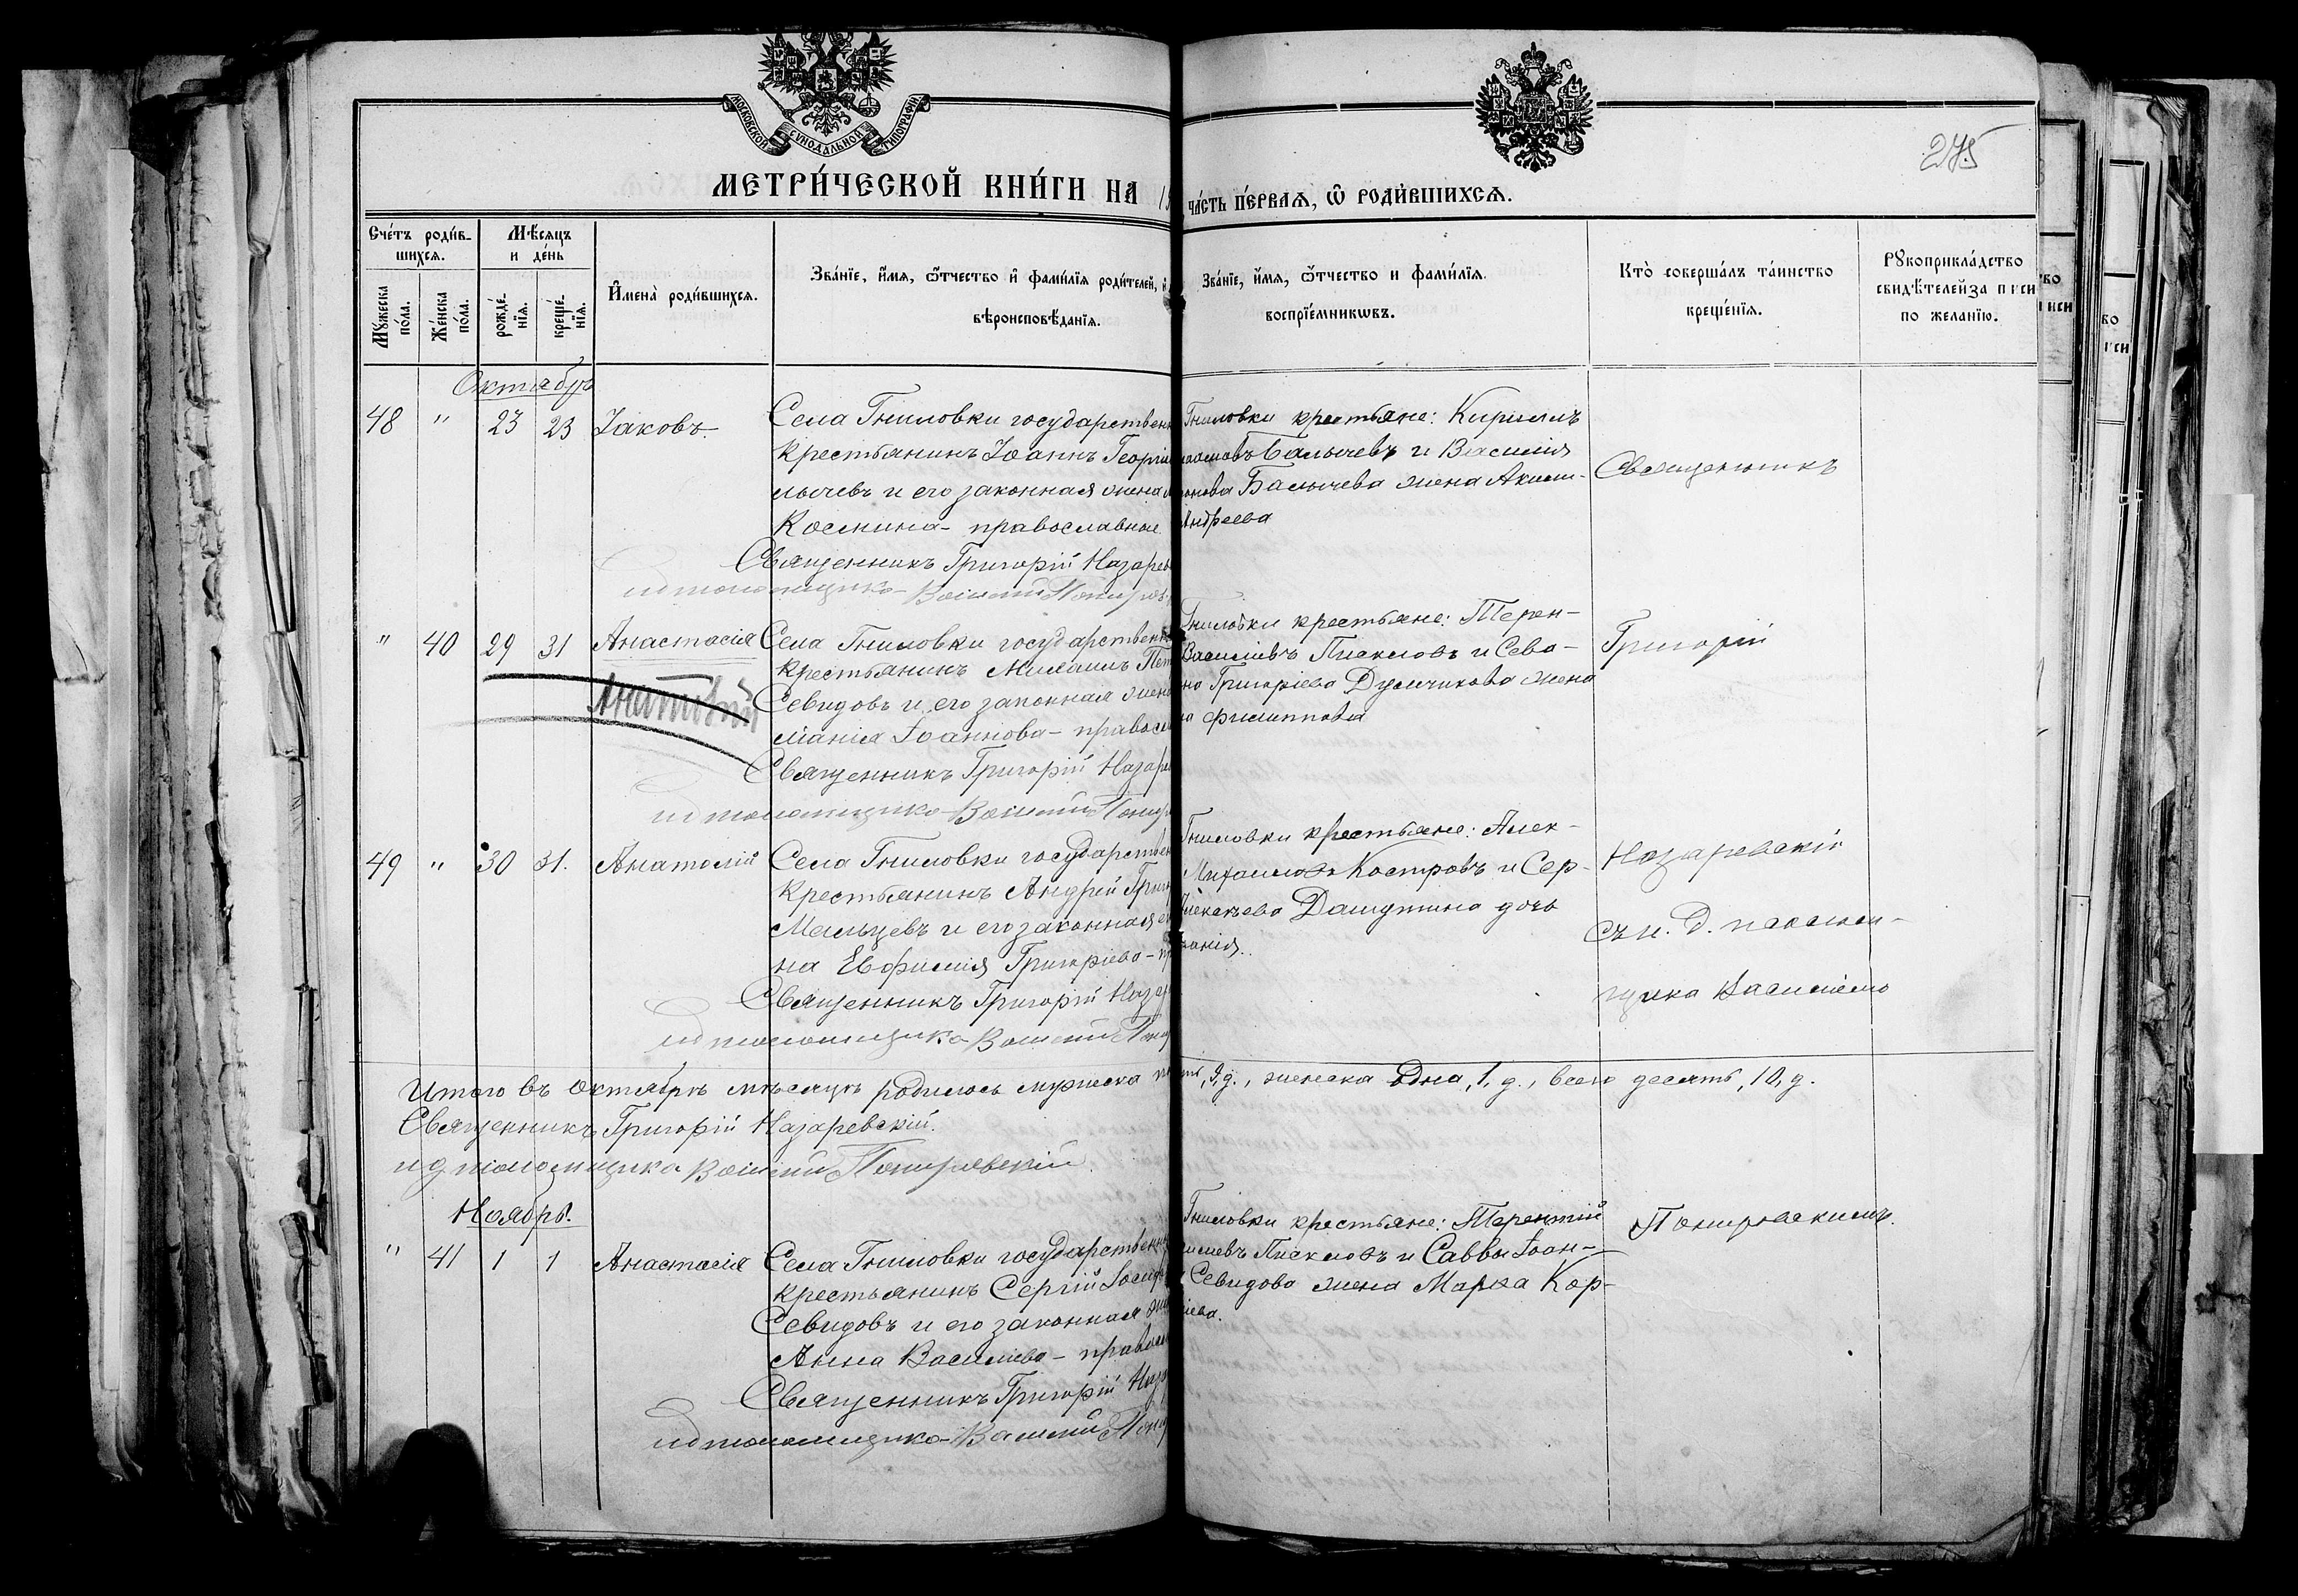 МОСКОВСКОЙ СѴНОДАЛЬНОЙ ТИПОГРАФІИ
275
МЕТРИ́ЧЕСКОЙ КНИ́ГИ НА 1
ЧА́СТЬ ПЕ́РВАѦ, Ѿ РОДИ́ВШИХСѦ.
Сче́тъ роди́в-
шихсѧ.
Мѣ́сѧцъ
и де́нь
Мꙋ́жеска
по́ла.
Же́нска
по́ла.
рожде́-
нїѧ.
креще́-
нїѧ.
И҆мена̀ роди́вшихсѧ.
Зва́нїе, и҆́мѧ, ѻ҆́тчество и҆ фами́лїѧ роди́телей, и҆
вѣроисповѣ́данїѧ.
Зва́нїе, и҆́мѧ, ѻ҆́тчество и фами́лїѧ
воспрїе́мникѡвъ.
Кто̀ соверша́лъ та́инство
креще́нїѧ.
Рꙋкоприкла́дство
свидѣ́телей за писи
по жела́нїю.
Октябрь
48 " 23 23 Іаковъ.
Села Гниловки государственн
крестьянинъ Іоаннъ Георгіе
лычевъ и его законная жена
Космина - православные
Священникъ Григорій Назарев
ид псаломщика Василій Покиров
Гниловки крестьяне: Кириллъ
Балычевъ и Василія
Балычева жена Акили-
Андреева
Священникъ
" 40 29 31 Анастасія
Анатолій
Села Гниловки государственн
крестьянинъ Михаилъ Пет
Севидовъ и его законная жена
ланія Іоаннова - правосл
Священникъ Григорій Назаре
ид псаломщика Василій
Гниловки крестьяне: Терен-
Василіевъ Писклов и Сева-
Григоріева жена
Филиппова
Григорій
49 " 30 31. Анатолій
Села Гниловки государствен
крестьянинъ Андрей Григ
Мальцевъ и его законная
на Евфимія Григоріева - пр
Священникъ Григорій Назар
ид псаломщика Василій
Гниловки крестьяне: Алек-
Михаиловъ Костровъ и Сер-
Алексѣева дочь
Назаревскій
съ и. д. псалом-
щика Василіемъ
Итого въ октябрѣ мѣсяцѣ родилось мужеска
, 9, д., женска одна, 1, д., всего десять, 10, д.
Священникъ Григорій Назаревскій.
и д псаломщика Василій
Ноябрь.
" 41 1 1 Анастасія
Села Гниловки государственн
крестьянинъ Сергій Іосиф
Севидовъ и его законная жен
Анна Василіева - правосл
Священникъ Григорій Наза
ид псаломщика Василій
Гниловки крестьяне: Терентій
Писклов и Саввы Іоан-
Севидова жена Марѳа Кор-
ліева.